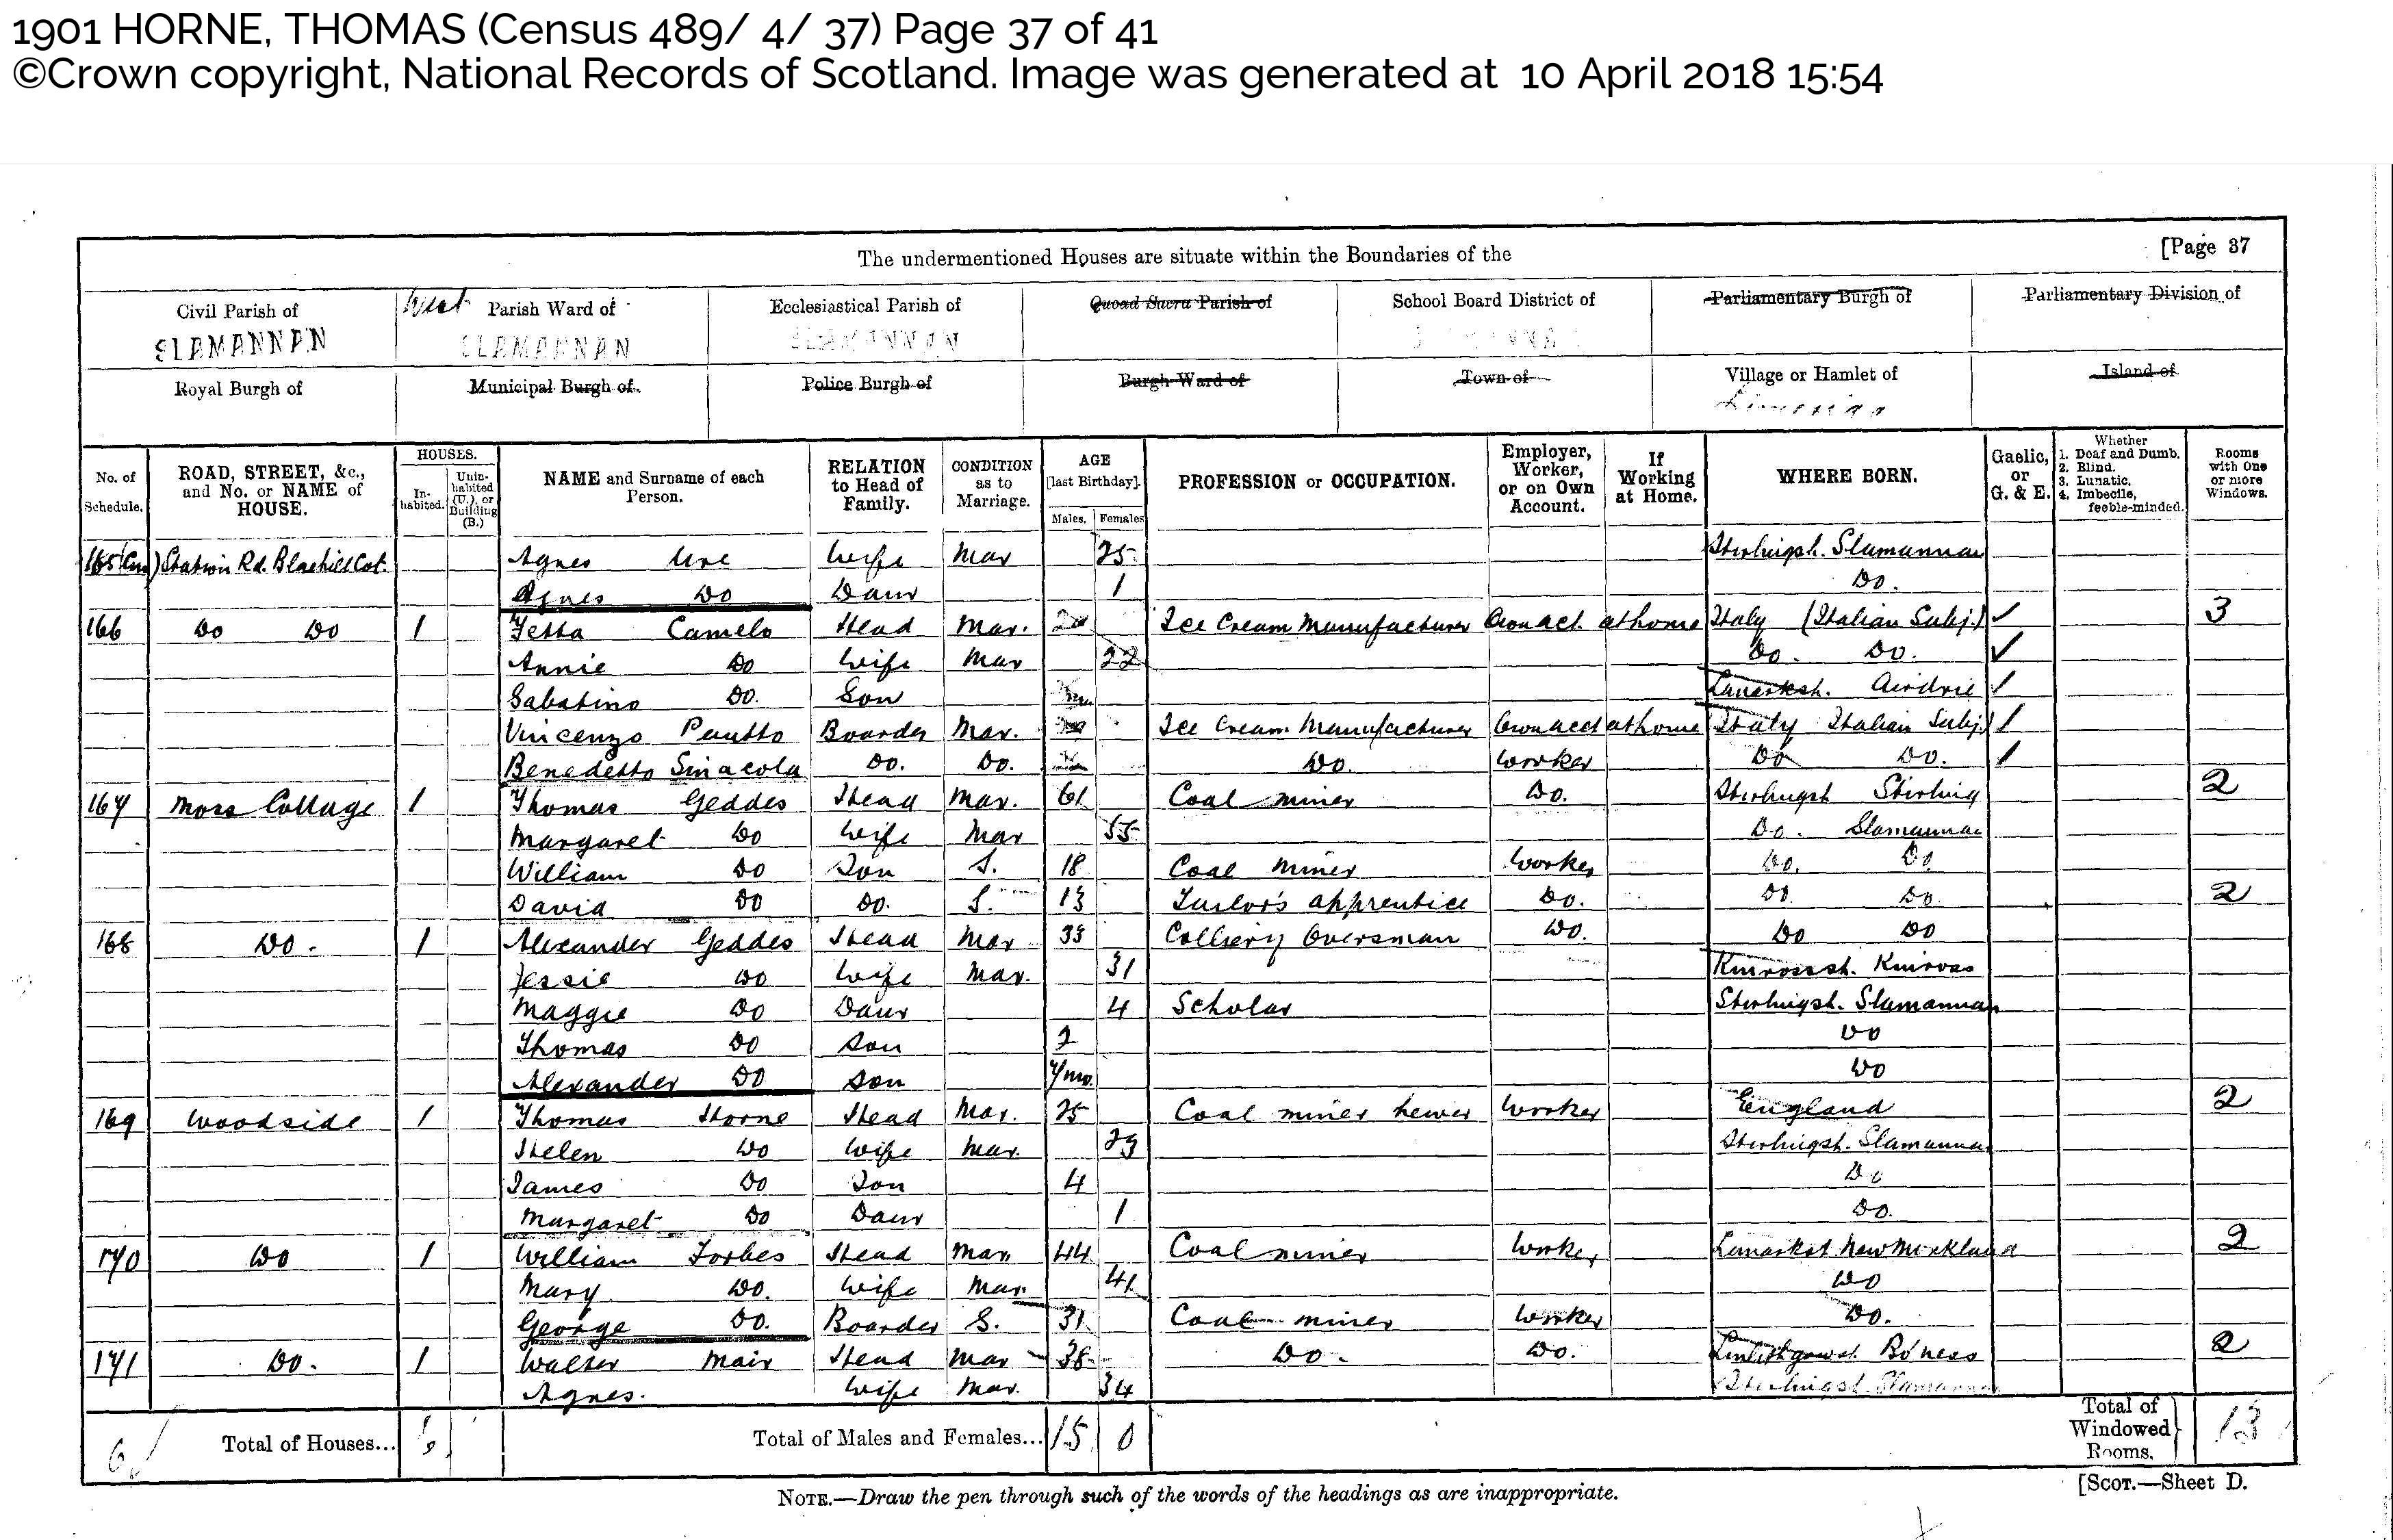 1901 HORNE, THOMAS (Census 489/ 4/ 37) Page 37 of 41
©Crown copyright, National Records of Scotland. Image was generated at 10 April 2018 15:54
The undermentioned Houses are situate within the Boundaries of the [Page 37
Civil Parish of West Parish Ward of Ecclesiastical Parish of Quoad Sacra Parish of School Board District of Parliamentary Burgh of Parliamentary Division of
SLAMANNAN SLAMANNAN SLAMANNAN
Royal Burgh of Municipal Burgh of Police Burgh of Burgh Ward of Town of Village or Hamlet of Island of
No. of Schedule. ROAD, STREET, &c., and No. or NAME of HOUSE. HOUSES. Inhabited. Uninhabited (U.), or Building (B.) NAME and Surname of each Person. RELATION to Head of Family. CONDITION as to Marriage. AGE [last Birthday]. Males. Females PROFESSION or OCCUPATION. Employer, Worker, or on Own Account. If Working at Home. WHERE BORN. Gaelic, or G. & E. Whether 1. Deaf and Dumb. 2. Blind. 3. Lunatic. 4. Imbecile, feeble-minded. Rooms with One or more Windows.
165 Station Rd. Blackhill Cot. Agnes Ure Wife Mar 25 Stirlingsh. Slamannan
Agnes Do Daur 1 Do.
166 Do Do 1 Camelo Head Mar. Ice Cream Manufacturer Own act at home Italy (Italian Subj.) 3
Annie Do Wife Mar 22 Do. Do.
Sabatino Do. Son Lanarksh. Airdrie
Vincenzo Boarder Mar. Ice Cream Manufacturer Own acct at home Italy Italian Subj.
Benedetto Sinacola Do. Do. Do. Worker Do Do.
167 Moss Cottage 1 Thomas Geddes Head Mar. 61 Coal miner Do. Stirlingsh Stirling 2
Margaret Do Wife Mar 55 Do. Slamannan
William Do Son S. 18 Coal miner Worker Do. Do.
David Do Do. S. 13 Tailor's apprentice Do. Do Do 2
168 Do. 1 Alexander Geddes Head Mar 33 Colliery Oversman Do. Do Do
Jessie Do Wife Mar. 31 Kinrosssh. Kinross
Maggie Do Daur 4 Scholar Stirlingsh. Slamannan
Thomas Do Son 2 Do
Alexander Do Son 7/mo. Do
169 Woodside 1 Thomas Horne Head Mar. 25 Coal miner hewer Worker England 2
Helen Do Wife Mar. 23 Stirlingsh. Slamannan
James Do Son 4 Do
Margaret Do Daur 1 Do.
170 Do 1 William Forbes Head Mar 44 Coal miner Worker Lanarksh New Monkland 2
Mary Do. Wife Mar. 41 Do
George Do. Boarder S. 31 Coal miner Worker Do.
171 Do. 1 Walter Mair Head Mar 38 Do. Do. Linlithgowsh. Bo'ness 2
Agnes. Wife Mar. 34 Stirlingsh. Slamannan
6 Total of Houses... Total of Males and Females... 15 Total of Windowed Rooms. 13
NOTE.—Draw the pen through such of the words of the headings as are inappropriate. [SCOT.—Sheet D.